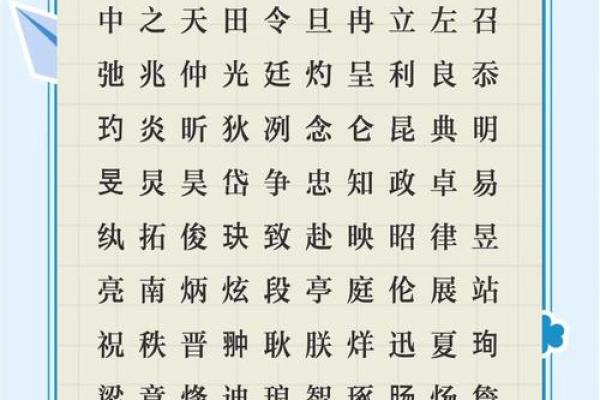 中之天田令旦冉立左召
弛兆仲光廷灼呈利良忝
玓炎昕狄冽念仑昆典明
旻炅昊岱争忠知政卓易
纨拓俊玦致赴映昭律昱
亮南炳炫段亭庭伦展站
祝秩晋翀耿朕烊迅夏珣
梁章烽迪琅智琢